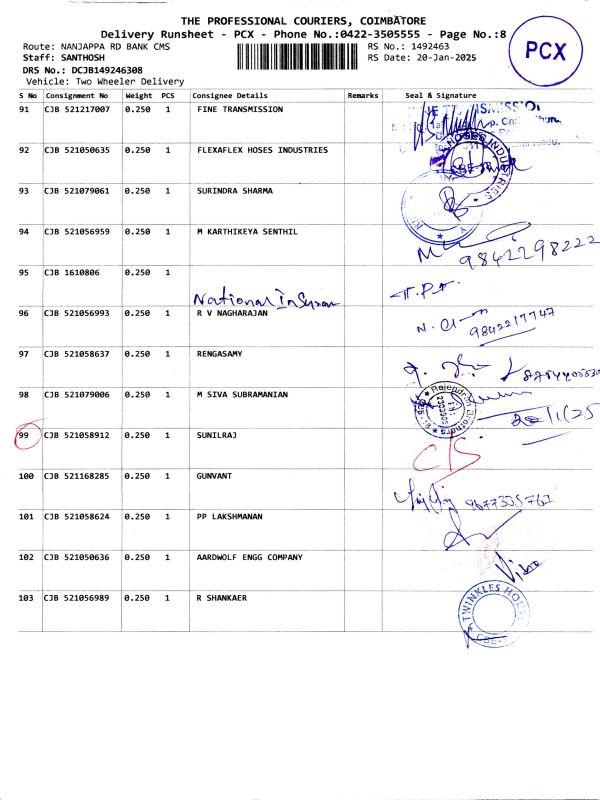 THE PROFESSIONAL COURIERS, COIMBATORE
Delivery Runsheet - PCX - Phone No.:0422-3505555 - Page No.:8
PCX
Route: NANJAPPA RD BANK CMS
RS No.: 1492463
Staff: SANTHOSH
RS Date: 20-Jan-2025
DRS No.: DCJB149246308
Vehicle: Two Wheeler Delivery
S No Consignment No Weight PCS Consignee Details Remarks Seal & Signature
91 CJB 521217007 0.250 1 FINE TRANSMISSION
92 CJB 521050635 0.250 1 FLEXAFLEX HOSES INDUSTRIES
HOSES INDUSTRIES
93 CJB 521079061 0.250 1 SURINDRA SHARMA
94 CJB 521056959 0.250 1 M KARTHIKEYA SENTHIL
9842298222
95 CJB 1610806 0.250 1
National
96 CJB 521056993 0.250 1 R V NAGHARAJAN
9842217747
97 CJB 521058637 0.250 1 RENGASAMY
98 CJB 521079006 0.250 1 M SIVA SUBRAMANIAN
20/1/25
99 CJB 521058912 0.250 1 SUNILRAJ
100 CJB 521168285 0.250 1 GUNVANT
101 CJB 521058624 0.250 1 PP LAKSHMANAN
102 CJB 521050636 0.250 1 AARDWOLF ENGG COMPANY
103 CJB 521056989 0.250 1 R SHANKAER
TWINKLES